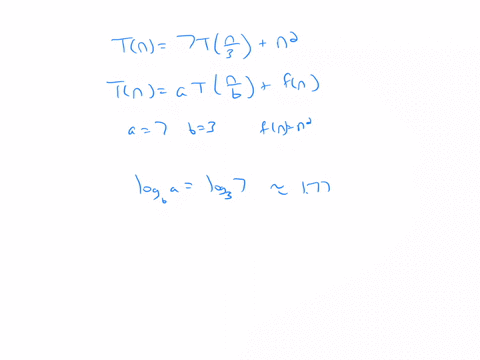 T(n) = 7T(n/3) + n²
T(n) = aT(n/b) + f(n)
a = 7 b = 3 f(n) = n²
log_b a = log_3 7 ≈ 1.77